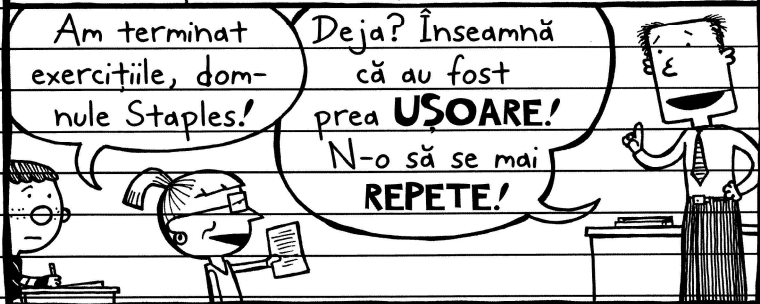 Am terminat
exercițiile, dom-
nule Staples!
Deja? Înseamnă
că au fost
prea UȘOARE!
N-o să se mai
REPETE!